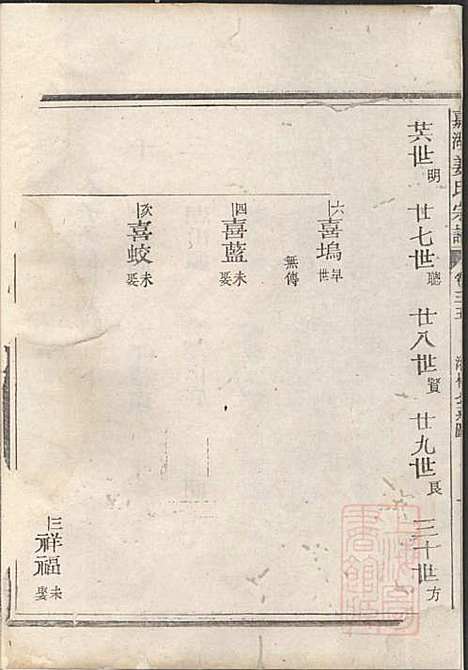 嘉湖姜氏宗譜 卷三五
茓世明 廿七世聰 廿八世賢 廿九世良 三十世方
六 喜塢 早世
無傳
四 喜藍 未娶
次 喜蛟 未娶
三 祥福 未娶